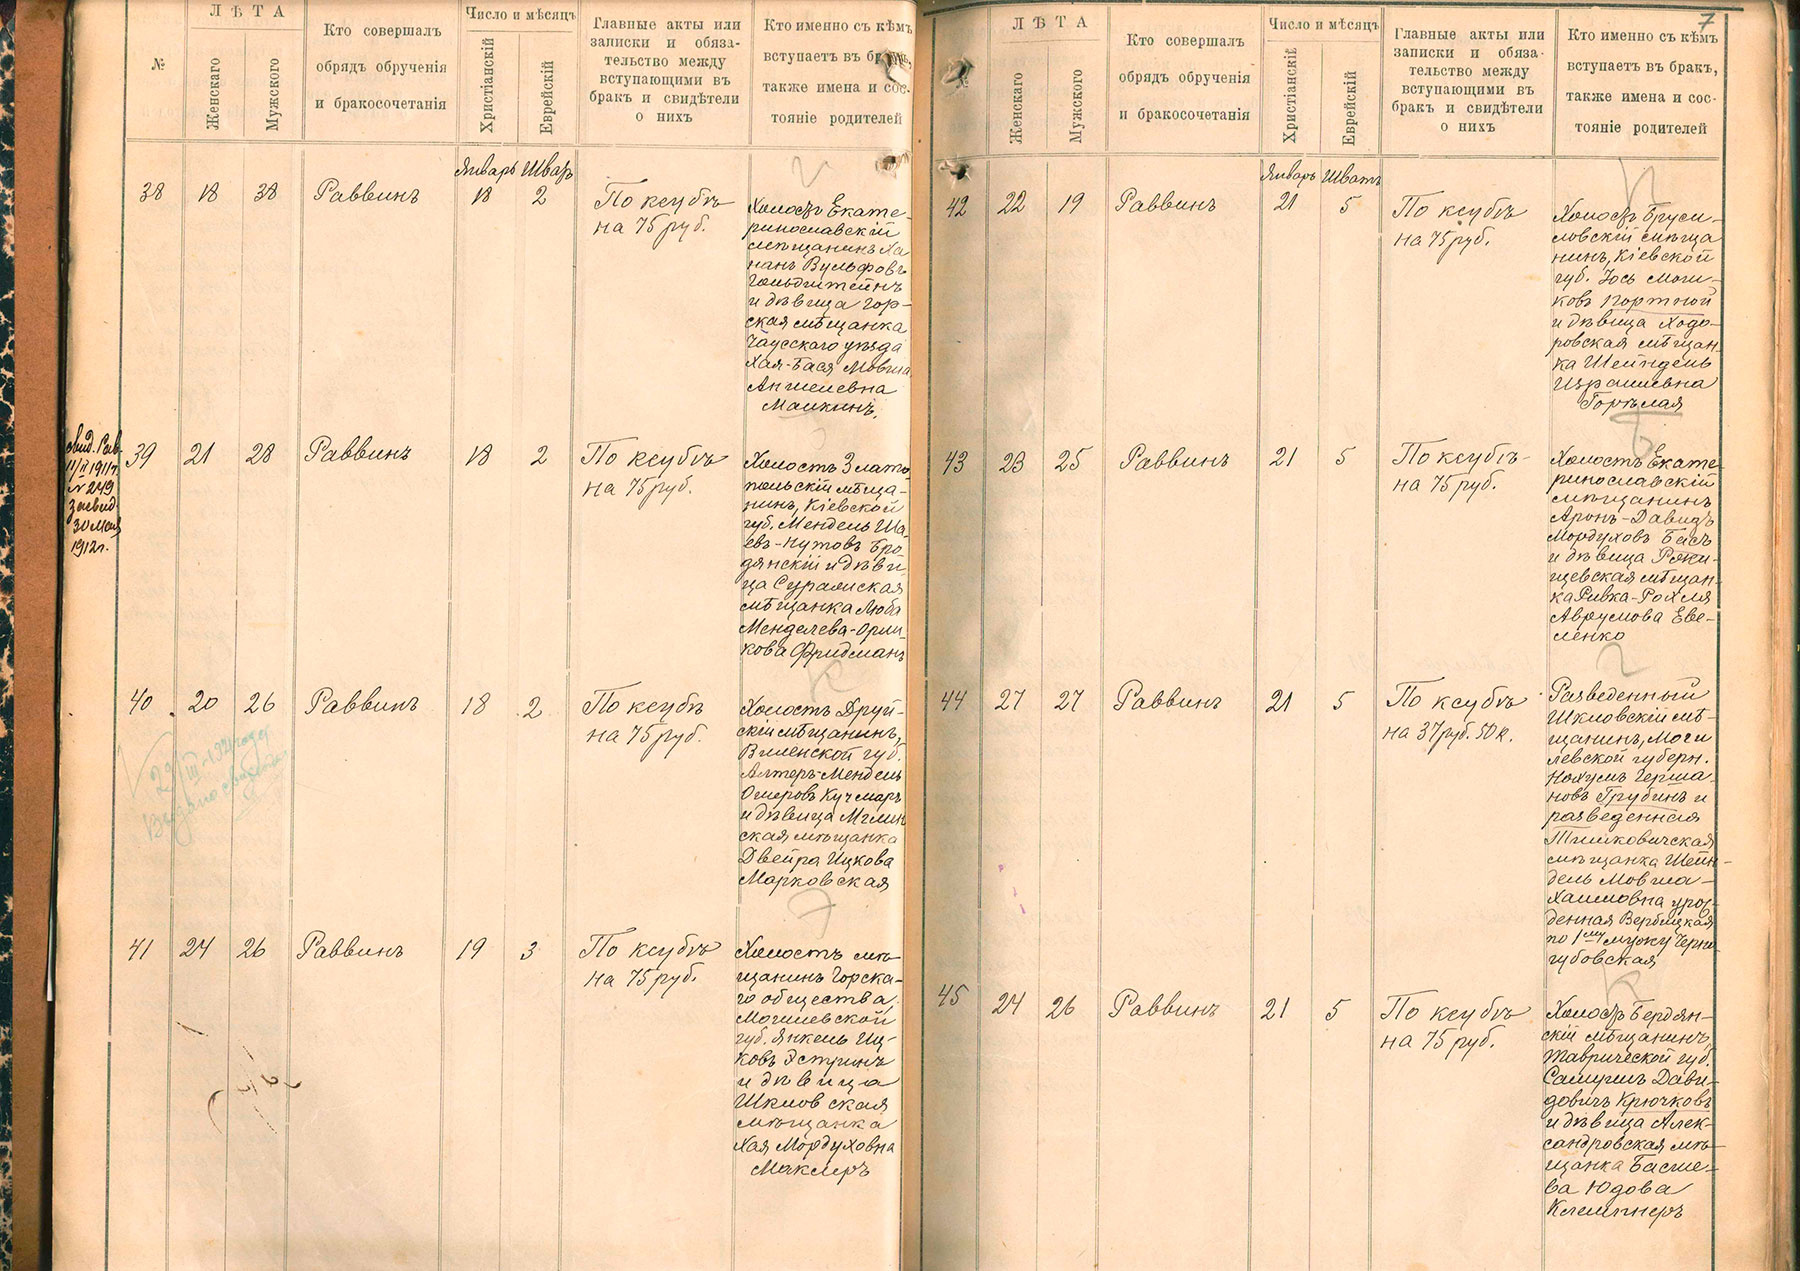 №
ЛѢТА
Женскаго
Мужского
Кто совершалъ
обрядъ обрученія
и бракосочетанія
Число и мѣсяцъ
Христіанскій
Еврейскій
Главные акты или
записки и обяза-
тельство между
вступающими въ
бракъ и свидѣтели
о нихъ
Кто именно съ кѣмъ
вступаетъ въ бракъ,
также имена и сос-
тояніе родителей
Январь Шватъ
38 18 38 Раввинъ 18 2
По ксубѣ
на 75 руб.
Холостъ Екате-
ринославскій
мѣщанинъ Ха
нанъ Вульфовъ
Гольдштейнъ
и дѣвица Гор-
ская мѣщанка
Чаусскаго уѣзда
Хая-Бася Мовша
Аншелевна
Малкинъ.
Свид. Рав.
11/II 1911 г.
№ 249
Засвид.
30 Мая
1912 г.
39 21 28 Раввинъ 18 2
По ксубѣ
на 75 руб.
Холостъ Злато
польскій мѣща-
нинъ, Кіевской
губ. Мендель Ша
евъ-Нутовъ Бро
дянскій и дѣви
ца Суражская
мѣщанка Люба
Менделева-Ори
кова Фридманъ
40 20 26 Раввинъ 18 2
По ксубѣ
на 75 руб.
Холостъ Друй-
скій мѣщанинъ,
Виленской губ.
Алтеръ-Мендель
Омеровъ Кучмаръ
и дѣвица Мглин
ская мѣщанка
Двейра Ицкова
Марковская
41 24 26 Раввинъ 19 3
По ксубѣ
на 75 руб.
Холостъ мѣ
щанинъ Горска-
го общества,
Могилевской
губ. Янкель Иц-
ковъ Эстринъ
и дѣвица
Шкловская
мѣщанка
Хая Мордуховна
Маклеръ
7
№
ЛѢТА
Женскаго
Мужского
Кто совершалъ
обрядъ обрученія
и бракосочетанія
Число и мѣсяцъ
Христіанскій
Еврейскій
Главные акты или
записки и обяза-
тельство между
вступающими въ
бракъ и свидѣтели
о нихъ
Кто именно съ кѣмъ
вступаетъ въ бракъ,
также имена и сос-
тояніе родителей
Январь Шватъ
42 22 19 Раввинъ 21 5
По ксубѣ
на 75 руб.
Холостъ Бруси-
ловскій мѣща
нинъ, Кіевской
губ. Іось Мош-
ковъ Портной
и дѣвица Ходо-
ровская мѣщан
ка Шейндель
Израилевна
Горѣлая
43 23 25 Раввинъ 21 5
По ксубѣ
на 75 руб.
Холостъ Екате-
ринославскій
мѣщанинъ
Аронъ-Давидъ
Мордуховъ Басъ
и дѣвица Ржи-
щевская мѣщан-
ка Ривка-Рохля
Аврумова Еве-
ленко
44 27 27 Раввинъ 21 5
По ксубѣ
на 37 руб. 50 к.
Разведенный
Шкловскій мѣ-
щанинъ, Моги
левской губерн.
Нохумъ Герша-
новъ Грубинъ и
разведенная
мѣщанка Шейн-
дель Мовша-
Хаимовна урож
денная Вербицкая
по 1му мужу Черно-
губовская
45 24 26 Раввинъ 21 5
По ксубѣ
на 75 руб.
Холостъ Бердян-
скій мѣщанинъ,
Таврической губ.
Самуилъ Дави-
довичъ Крючковъ
и дѣвица Алек-
сандровская мѣ-
щанка Басше-
ва Юдова
Клемпнеръ